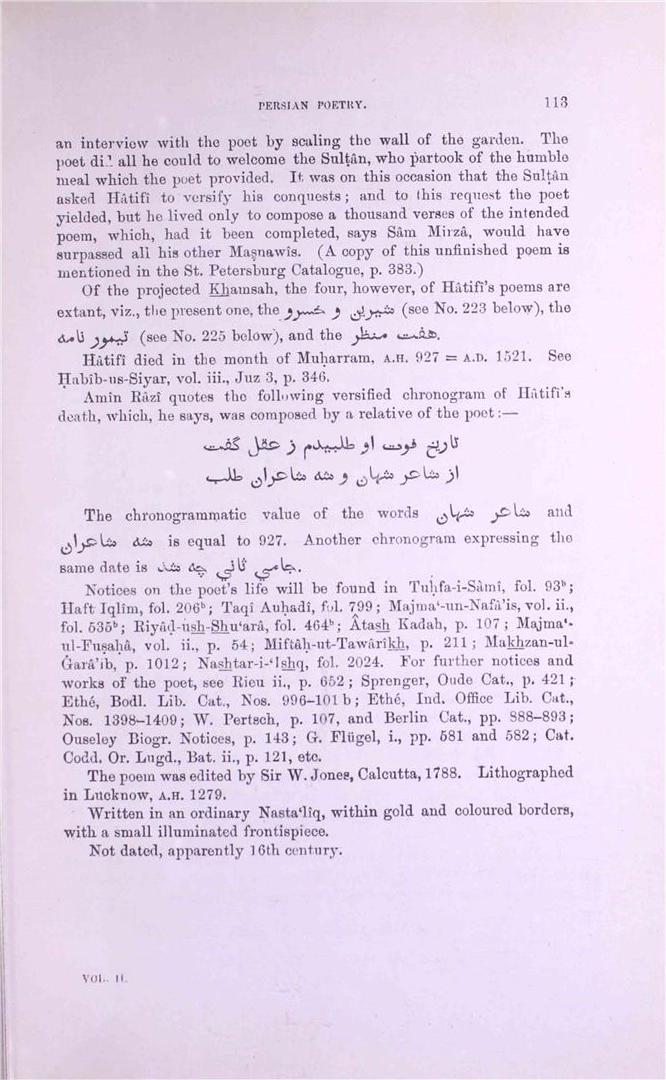 PERSIAN POETRY. 113
an interview with the poet by scaling the wall of the garden. The
poet did all he could to welcome the Sulṭân, who partook of the humble
meal which the poet provided. It was on this occasion that the Sulṭân
asked Hâtifî to versify his conquests; and to this request the poet
yielded, but he lived only to compose a thousand verses of the intended
poem, which, had it been completed, says Sâm Mirzâ, would have
surpassed all his other Maṣnawîs. (A copy of this unfinished poem is
mentioned in the St. Petersburg Catalogue, p. 383.)
Of the projected Khamsah, the four, however, of Hâtifî's poems are
extant, viz., the present one, the شيرين و خسرو (see No. 223 below), the
تيمور نامه (see No. 225 below), and the هفت منظر.
Hâtifî died in the month of Muḥarram, A.H. 927 = A.D. 1521. See
Ḥabîb-us-Siyar, vol. iii., Juz 3, p. 346.
Amîn Râzî quotes the following versified chronogram of Hâtifî's
death, which, he says, was composed by a relative of the poet:—
تاريخ فوت او طلبيدم ز عقل گفت
از شاعر شهان و شه شاعران طلب
The chronogrammatic value of the words شاعر شهان and
شه شاعران is equal to 927. Another chronogram expressing the
same date is جامي ثاني چه شد.
Notices on the poet's life will be found in Tuḥfa-i-Sâmî, fol. 93ᵇ;
Haft Iqlîm, fol. 206ᵇ; Taqî Auḥadî, fol. 799; Majma‘-un-Nafâ'is, vol. ii.,
fol. 535ᵇ; Riyâḍ-ush-Shu‘arâ, fol. 464ᵇ; Âtash Kadah, p. 107; Majma‘-
ul-Fuṣaḥâ, vol. ii., p. 54; Miftâḥ-ut-Tawârîkh, p. 211; Makhzan-ul-
Ġarâ'ib, p. 1012; Nashtar-i-‘Ishq, fol. 2024. For further notices and
works of the poet, see Rieu ii., p. 652; Sprenger, Oude Cat., p. 421;
Ethé, Bodl. Lib. Cat., Nos. 996–101 b; Ethé, Ind. Office Lib. Cat.,
Nos. 1398–1409; W. Pertsch, p. 107, and Berlin Cat., pp. 888–893;
Ouseley Biogr. Notices, p. 143; G. Flügel, i., pp. 581 and 582; Cat.
Codd. Or. Lugd., Bat. ii., p. 121, etc.
The poem was edited by Sir W. Jones, Calcutta, 1788. Lithographed
in Lucknow, A.H. 1279.
Written in an ordinary Nasta‘lîq, within gold and coloured borders,
with a small illuminated frontispiece.
Not dated, apparently 16th century.
VOL. II.